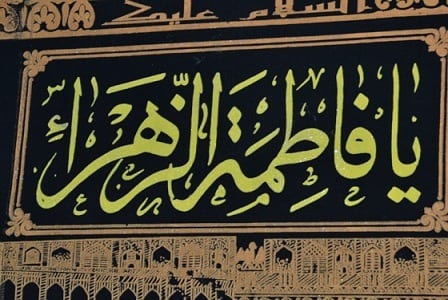 السلام عليك
يا فاطِمَةَ الزَّهراءِ